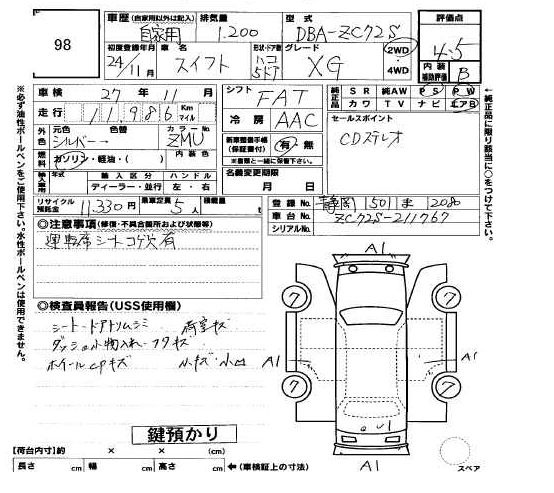 98
車歴 (自家用以外は記入) 排気量 型式 評価点
自家用 1.200 DBA-ZC72S 4.5
初度登録年月 車名 形状・ドア数 グレード 2WD 内装補助評価
24/11月 スイフト ハコ 5ドア XG 4WD B
車検 27年 11月 シフト FAT 純正品 SR 純AW PS PW
カワ TV ナビ エアB
走行 11986 Km マイル 冷房 AAC セールスポイント
外色 元色 色替 カラーNo. CDステレオ
シルバー ZMU
新車整備手帳(保証書付) 有・無
※書類と一緒に保管下さい。
燃料 ガソリン・軽油・( ) 内装色
名義変更期限 月 日
輸入車 輸入車区分 ハンドル
ディーラー・並行 左・右
リサイクル預託金 11,330円 乗車定員 5人 積載量 t
登録No. 静岡 501 ま 2080
車台No. ZC72S-211767
シリアルNo.
◎注意事項 (修復・不具合箇所および状態等)
運転席シートコゲ穴有
◎検査員報告(USS使用欄)
シート・ドアトリムシミ 荷室キズ
ダッシュ小物入れ・フタキズ
ホイールcpキズ 小キズ・小凹
A1
7 7
A1 A1
7 7
U1
A1
スペア
鍵預かり
【荷台内寸】約 × × (cm)
長さ cm 幅 cm 高さ cm ←(車検証上の寸法)
※必ず油性ボールペンをご使用下さい。水性ボールペンは使用できません。
←純正品に限り該当に○をつけて下さい。